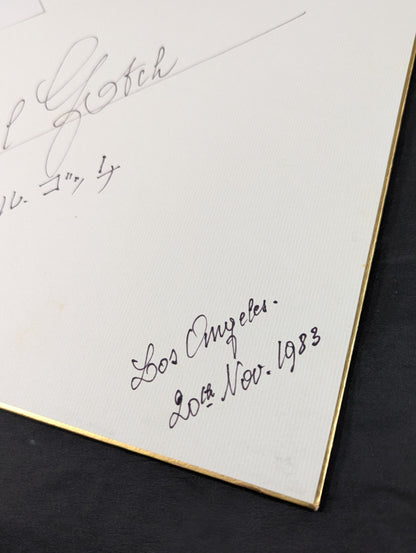 l Gotch
ル. ゴッチ
Los Angeles.
20th Nov. 1983